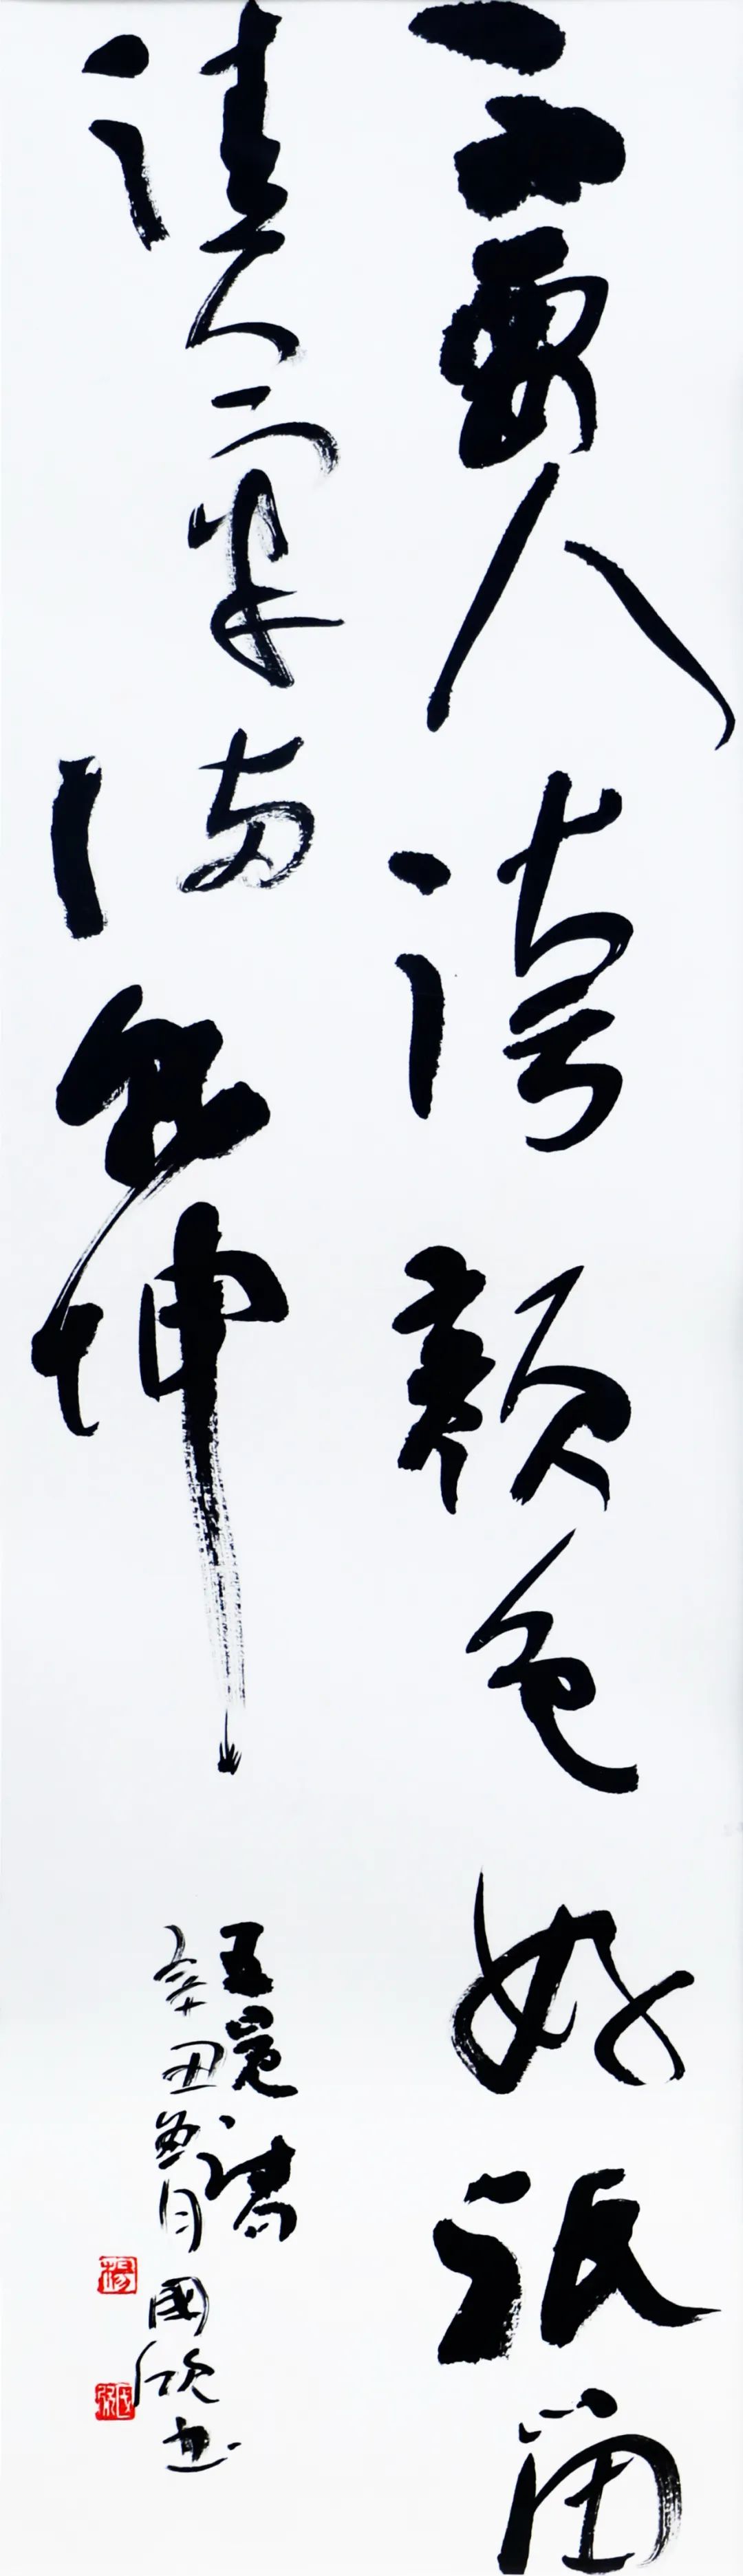 不要人誇顏色好祇留
清氣滿乾坤
王冕詩
辛丑魯月國欣書
楊
國欣